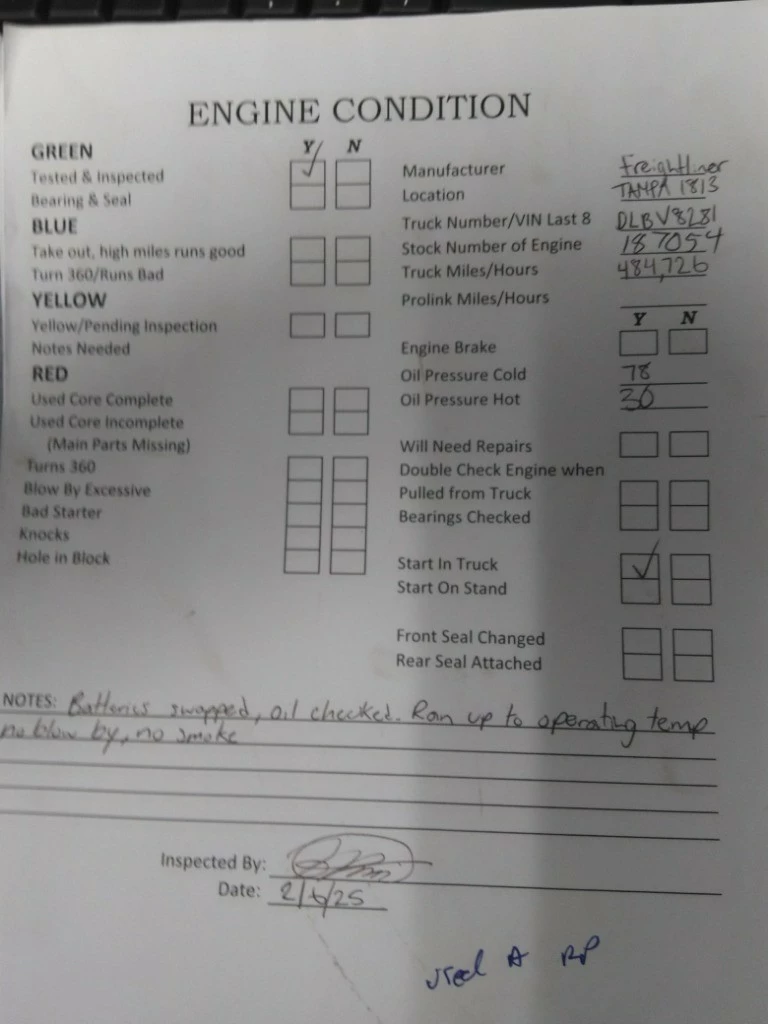 ENGINE CONDITION
GREEN Y N
Tested & Inspected
Bearing & Seal
BLUE
Take out, high miles runs good
Turn 360/Runs Bad
YELLOW
Yellow/Pending Inspection
Notes Needed
RED
Used Core Complete
Used Core Incomplete
(Main Parts Missing)
Turns 360
Blow By Excessive
Bad Starter
Knocks
Hole in Block
Manufacturer Freightliner
Location TAMPA 1813
Truck Number/VIN Last 8 DLBV8281
Stock Number of Engine 187054
Truck Miles/Hours 484,726
Prolink Miles/Hours
Y N
Engine Brake
Oil Pressure Cold 78
Oil Pressure Hot 30
Will Need Repairs
Double Check Engine when
Pulled from Truck
Bearings Checked
Start In Truck
Start On Stand
Front Seal Changed
Rear Seal Attached
NOTES: Batteries swapped, oil checked. Ran up to operating temp
no blow by, no smoke
Inspected By:
Date: 2/6/25
used A RP